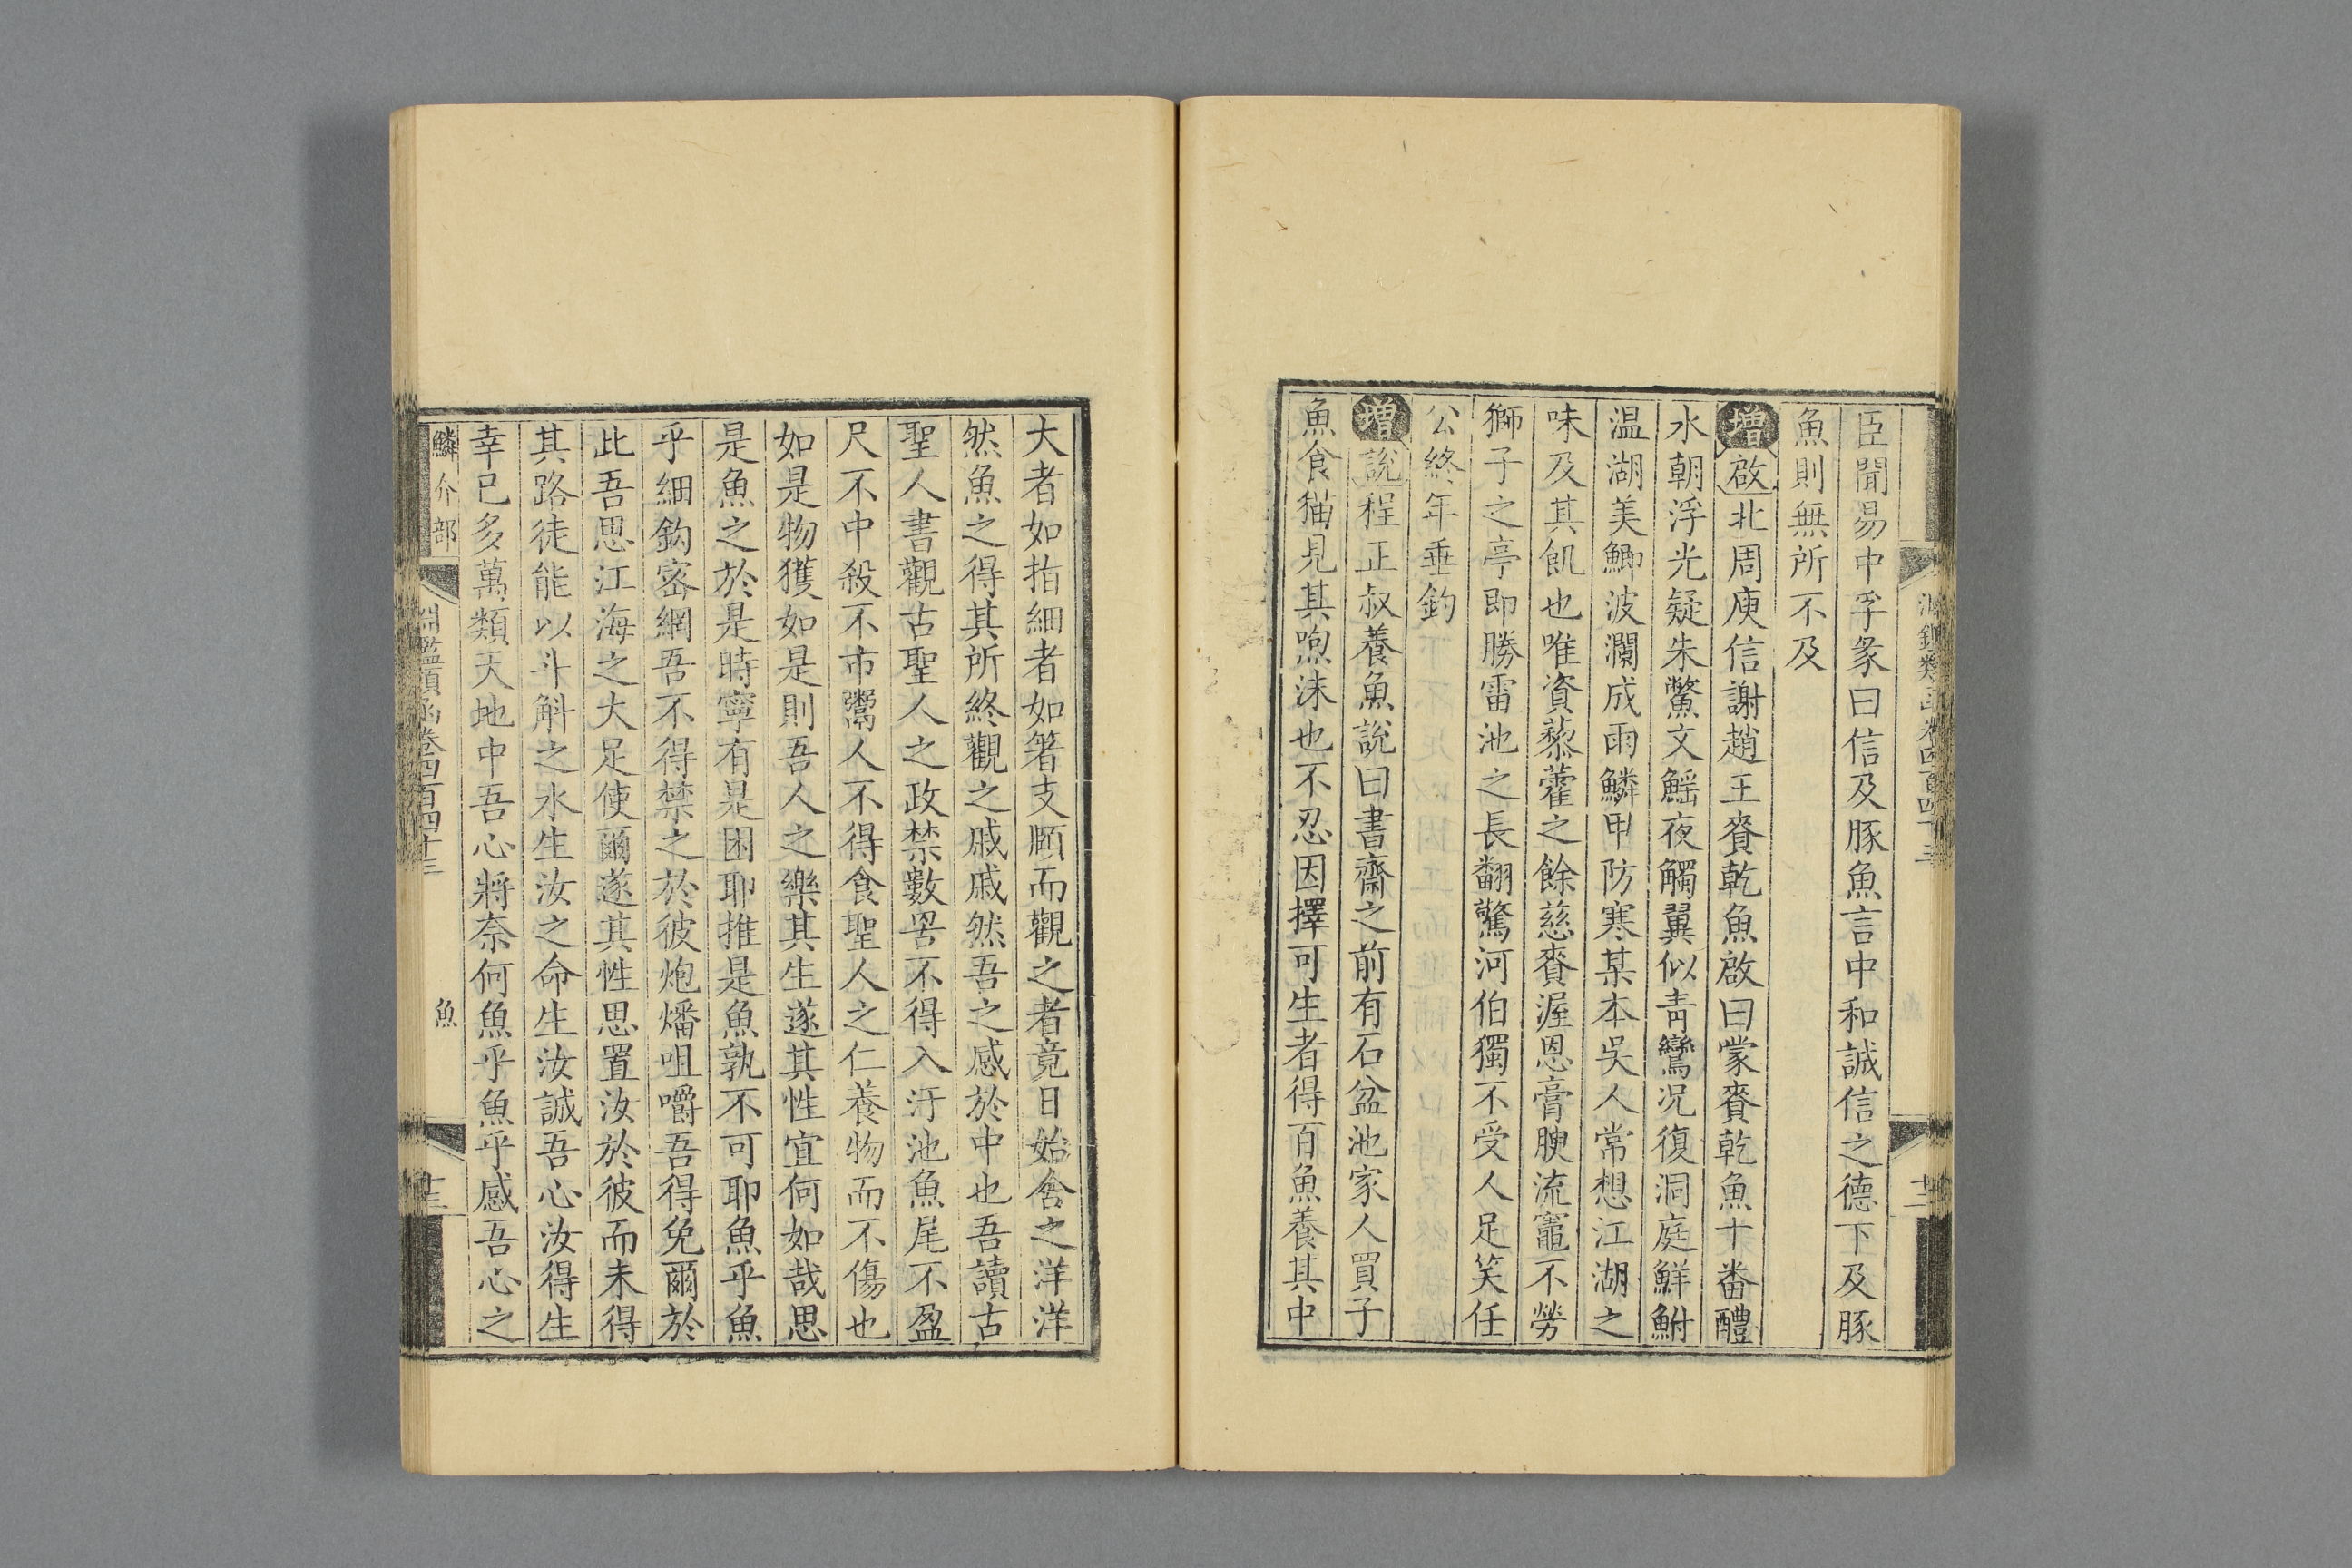 臣聞易中孚彖曰信及豚魚言中和誠信之德下及豚
魚則無所不及
增啟北周庾信謝趙王賚乾魚啟曰蒙賚乾魚十番醴
水朝浮光疑朱鷩文鰩夜觸翼似青鸞况復洞庭鮮鮒
温湖美鯽波瀾成雨鱗甲防寒某本吳人常想江湖之
味及其飢也唯資藜藿之餘慈賚渥恩膏腴流竈不勞
獅子之亭即勝雷池之長翻驚河伯獨不受人足笑任
公終年垂釣
增說程正叔養魚說曰書齋之前有石盆池家人買子
魚食猫見其喣沫也不忍因擇可生者得百魚養其中
大者如指細者如箸支頤而觀之者竟日始舍之洋洋
然魚之得其所終觀之戚戚然吾之感於中也吾讀古
聖人書觀古聖人之政禁數罟不得入汙池魚尾不盈
尺不中殺不市鬻人不得食聖人之仁養物而不傷也
如是物獲如是則吾人之樂其生遂其性宜何如哉思
是魚之於是時寧有是困耶推是魚孰不可耶魚乎魚
乎細鈎密網吾不得禁之於彼炮燔咀嚼吾得免爾於
此吾思江海之大足使爾遂其性思置汝於彼而未得
其路徒能以斗斛之水生汝之命生汝誠吾心汝得生
幸已多萬類天地中吾心將奈何魚乎魚乎感吾心之
鱗介部
淵鑑類函卷四百四十三
魚
十三